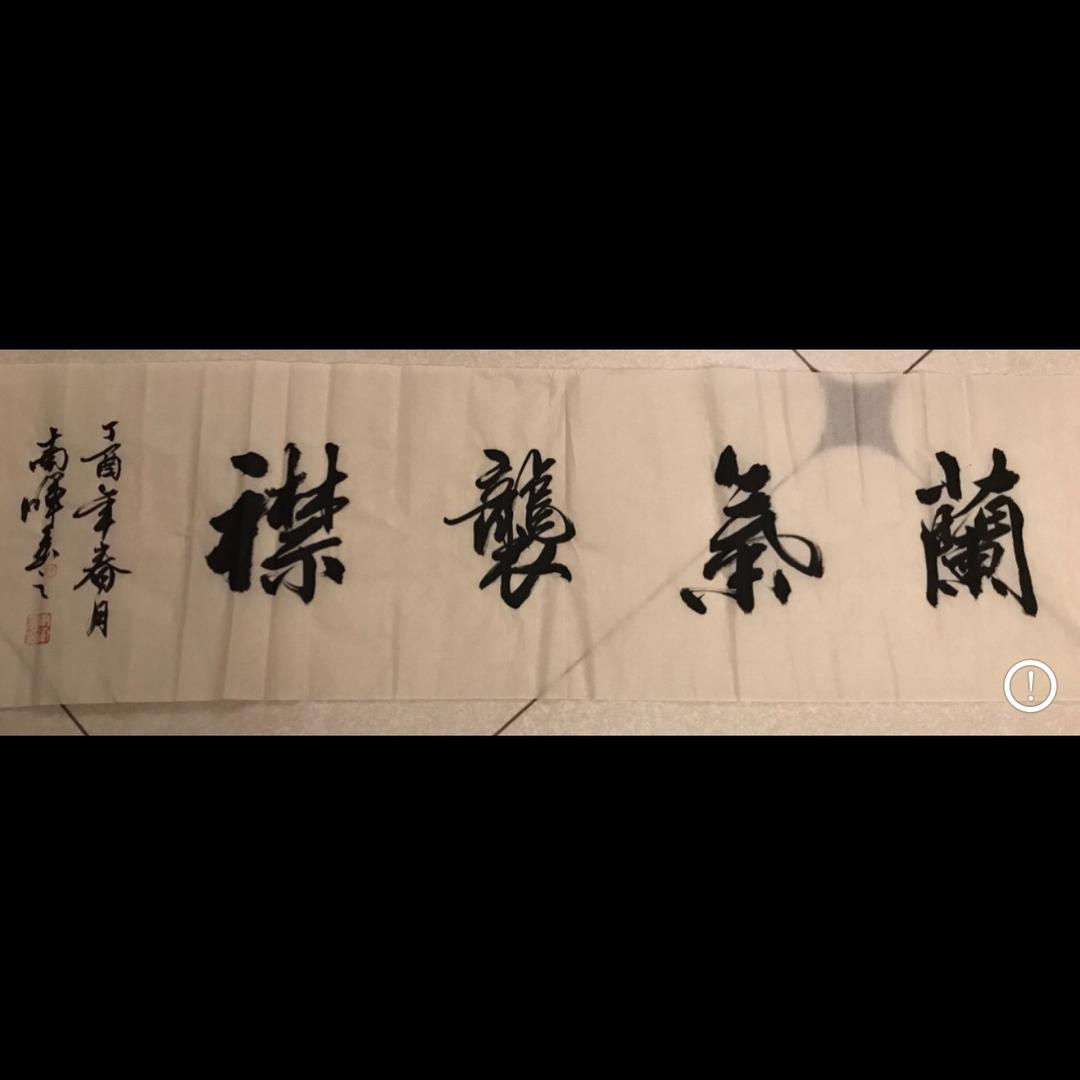 蘭氣襲襟
丁酉年春月
南暉書之